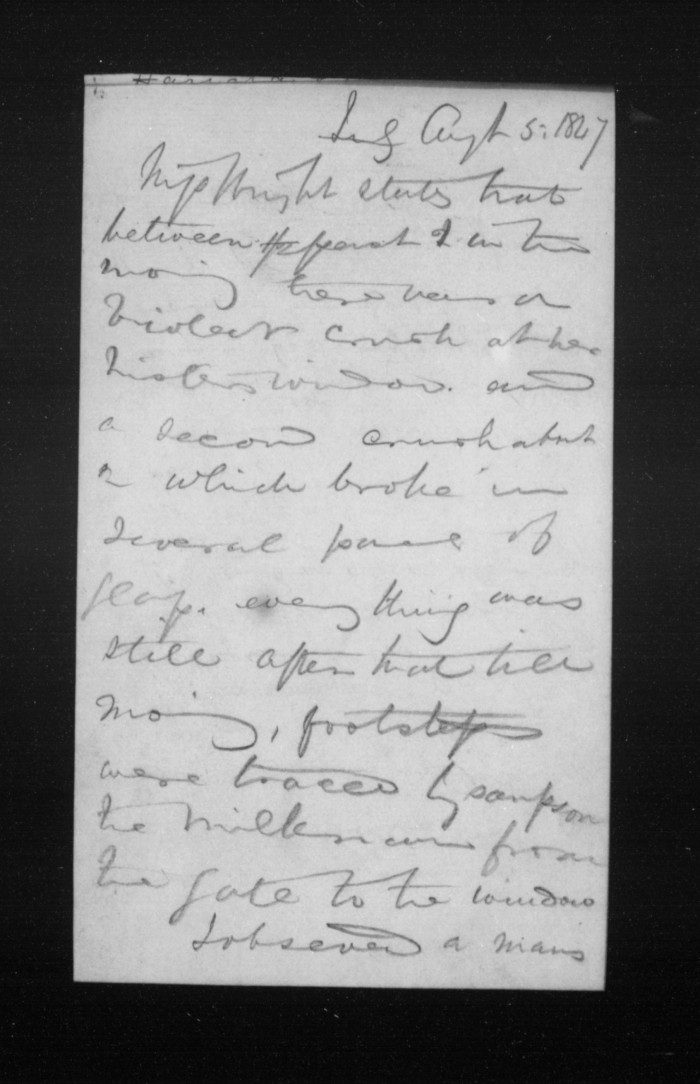 Augt 5. 1847
Miss Wright states that
between 1 & 2 in the
morning there was a
violent crash at her
sisters window. and
a second crash about
2 which broke in
several panes of
glass. every thing was
still after that till
morning, footsteps
were traced by sampson
the milkman from
the gate to the window
I obseved a mans